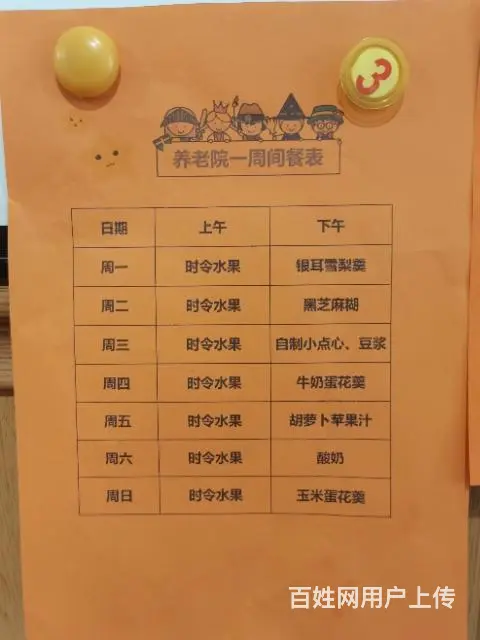 3
养老院一周间餐表
日期 上午 下午
周一 时令水果 银耳雪梨羹
周二 时令水果 黑芝麻糊
周三 时令水果 自制小点心、豆浆
周四 时令水果 牛奶蛋花羹
周五 时令水果 胡萝卜苹果汁
周六 时令水果 酸奶
周日 时令水果 玉米蛋花羹
百姓网用户上传